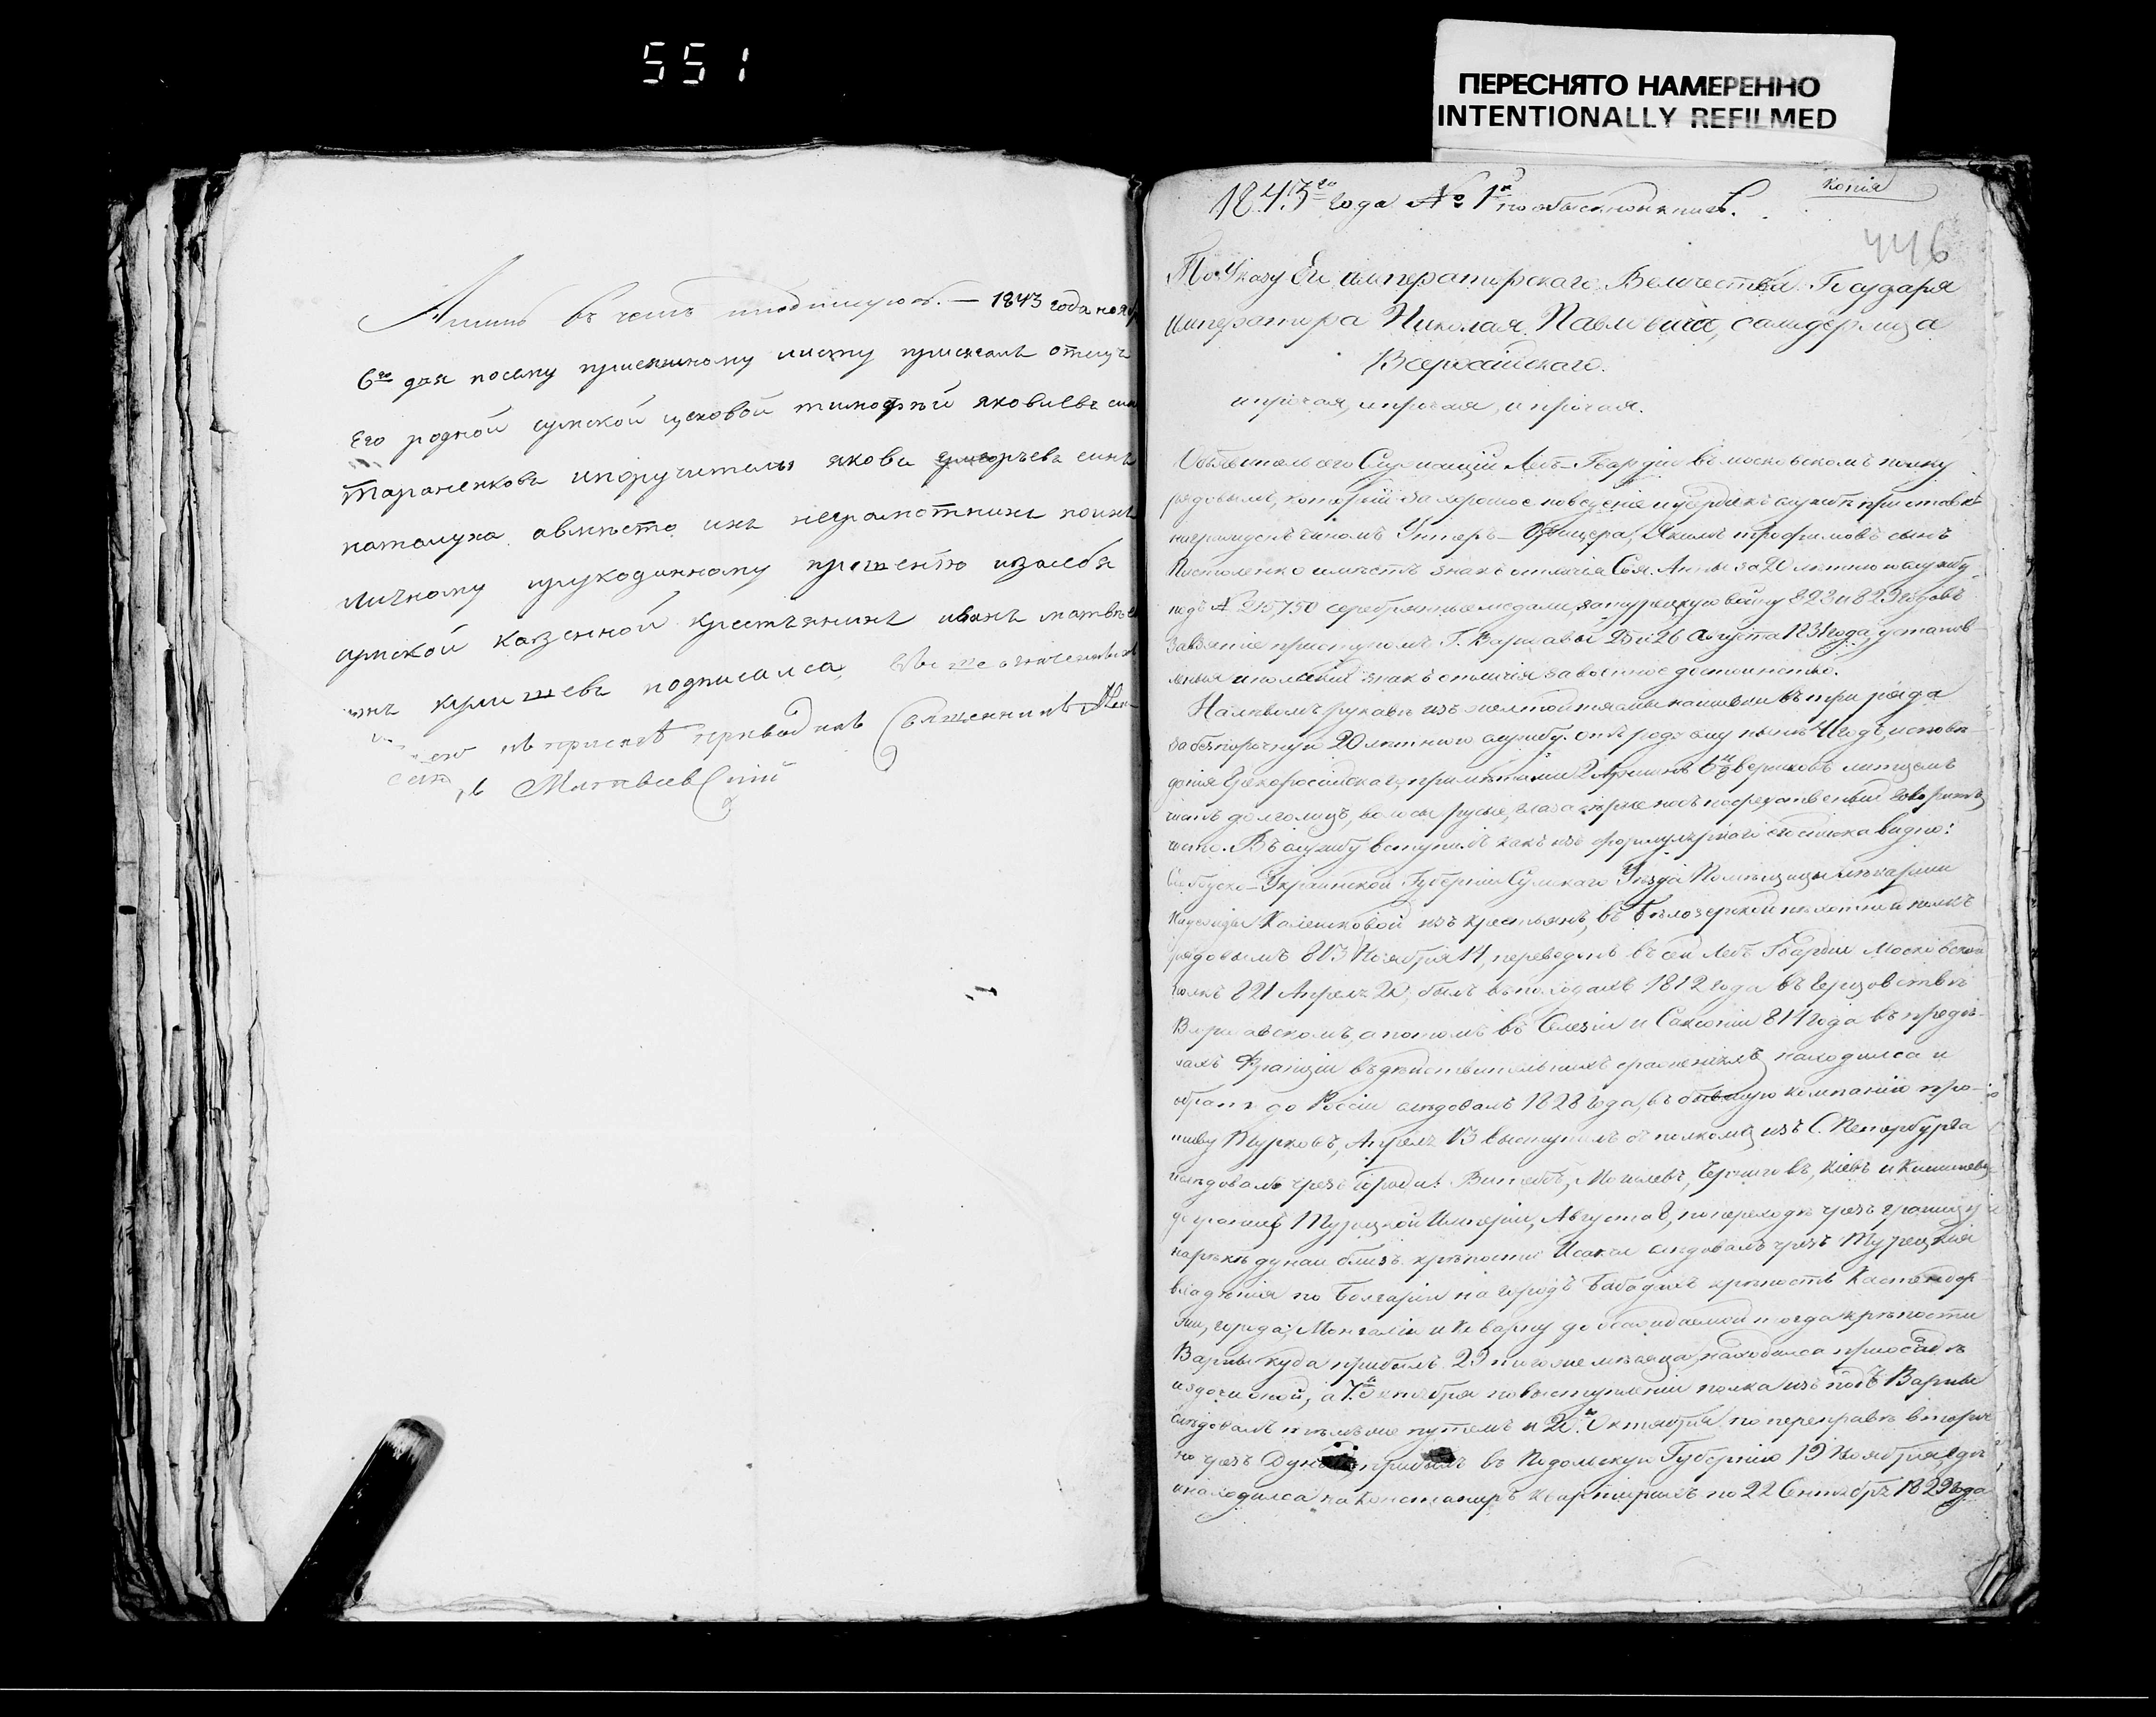 551
ПЕРЕСНЯТО НАМЕРЕННО
INTENTIONALLY REFILMED
Аминь въ чемъ иподпишуюсь. — 1843 года нояб
6го дня посему присяжному листу присягалъ отецъ
его родной сумской цеховой тимофей яковлевъ син
Тараненковъ ипоручитель якова григорьевъ синъ
паталуха авместо ихъ неграмотнихъ поихъ
личному ирукоданному прошению изасебя
сумской казенной крестьянинъ иванъ матвее
инъ кулишевъ подписалса, Више означенныхъ
къ присягѣ приводилъ Священникъ Алек-
Матвѣевскій
копія
1843го года № 1й по обыскнонаписъ.
446
По Указу Его императорскаго Величества Государя
императора Николая Павловича, самодержца
Всероссійскаго.
ипрочая, ипрочая, ипрочая.
Объявитель сего Служащій Лейбъ-Гвардіи въ московскомъ полку
рядовымъ, который за хорошое поведеніе иусердную службу приотставкѣ
награжденъ чиномъ Унтеръ-Офицера, Якимъ трофимовъ сынъ
Пистоленко имѣетъ знакъ отличія Свя. Анны за 20 лѣтнюю службу
подъ № 215,750 серебрянные медали, затурецкую войну 828 и 829 годовъ
Завзятіе приступомъ Г. Варшавы 25 и 26 Августа 1831 года, установ-
ленныя ипольскій знакъ отличія завоенное достоинство.
Налѣвомъ рукавѣ изъ желтой тясьмы нашивки въ три ряда
за безпорочную 20 лѣтнюю службу. отъ роду ему нынѣ 41 годъ, исповѣ-
данія Грекороссійскаго, примѣтами 2 Аршинъ 6 вершковъ лицемъ
чистъ долголицъ, волосы русые, глаза сѣрые носъ посредственный говоритъ
чисто. Въ службу вступилъ какъ изъ формулярнаго списка видно:
Слободско-Украинской Губерніи Сумскаго Уѣзда Помѣщицы
Надежды Калешковой изъ крестьянъ, въ Бѣлозерской пѣхотной полкъ
рядовымъ 813 Ноября 14, переведенъ въ сей Лейбъ Гвардіи Московской
полкъ 821 Апрѣля 20, былъ въ походахъ 1812 года въ Герцовствѣ
Варшавскомъ, а потомъ въ Силезіи и Саксоніи 814 года въ предѣ-
лахъ Франціи въ дѣйствительныхъ сраженіяхъ находился и
обратно до Россіи слѣдовалъ 1828 года, въ бывшую компанію про-
тиву Турковъ, Апрѣля 13 выступилъ съ полкомъ изъ С. Петербурга
ислѣдовалъ чрезъ города: Витебъ, Могилевъ, Черниговъ, Кіевъ и Кишиневъ
до границъ Турецкой Имперіи, Августа 8, попереходѣ чрезъ границу
нарѣкѣ дунаи близъ крѣпости Исакчи слѣдовалъ чрезъ Турецкія
владѣнія по Болгаріи на городъ Бабадагъ крѣпость Кастендор-
жи, города, Монгалію и Коварну до осаждаемой тогда крѣпости
Варны куда прибылъ 29 тогоже мѣсяца, находился приосадѣ
издачи оной, а 7го октября повыступленіи полка изъ подъ Варны
слѣдовалъ тѣмъже путемъ и 20го Октября по переправѣ вторич
но чрезъ Дунай прибылъ въ Подольскую Губернію 19 Ноября, гдѣ
инаходился на Кантониръ Квартирахъ по 22 Сентябрь 1829 года